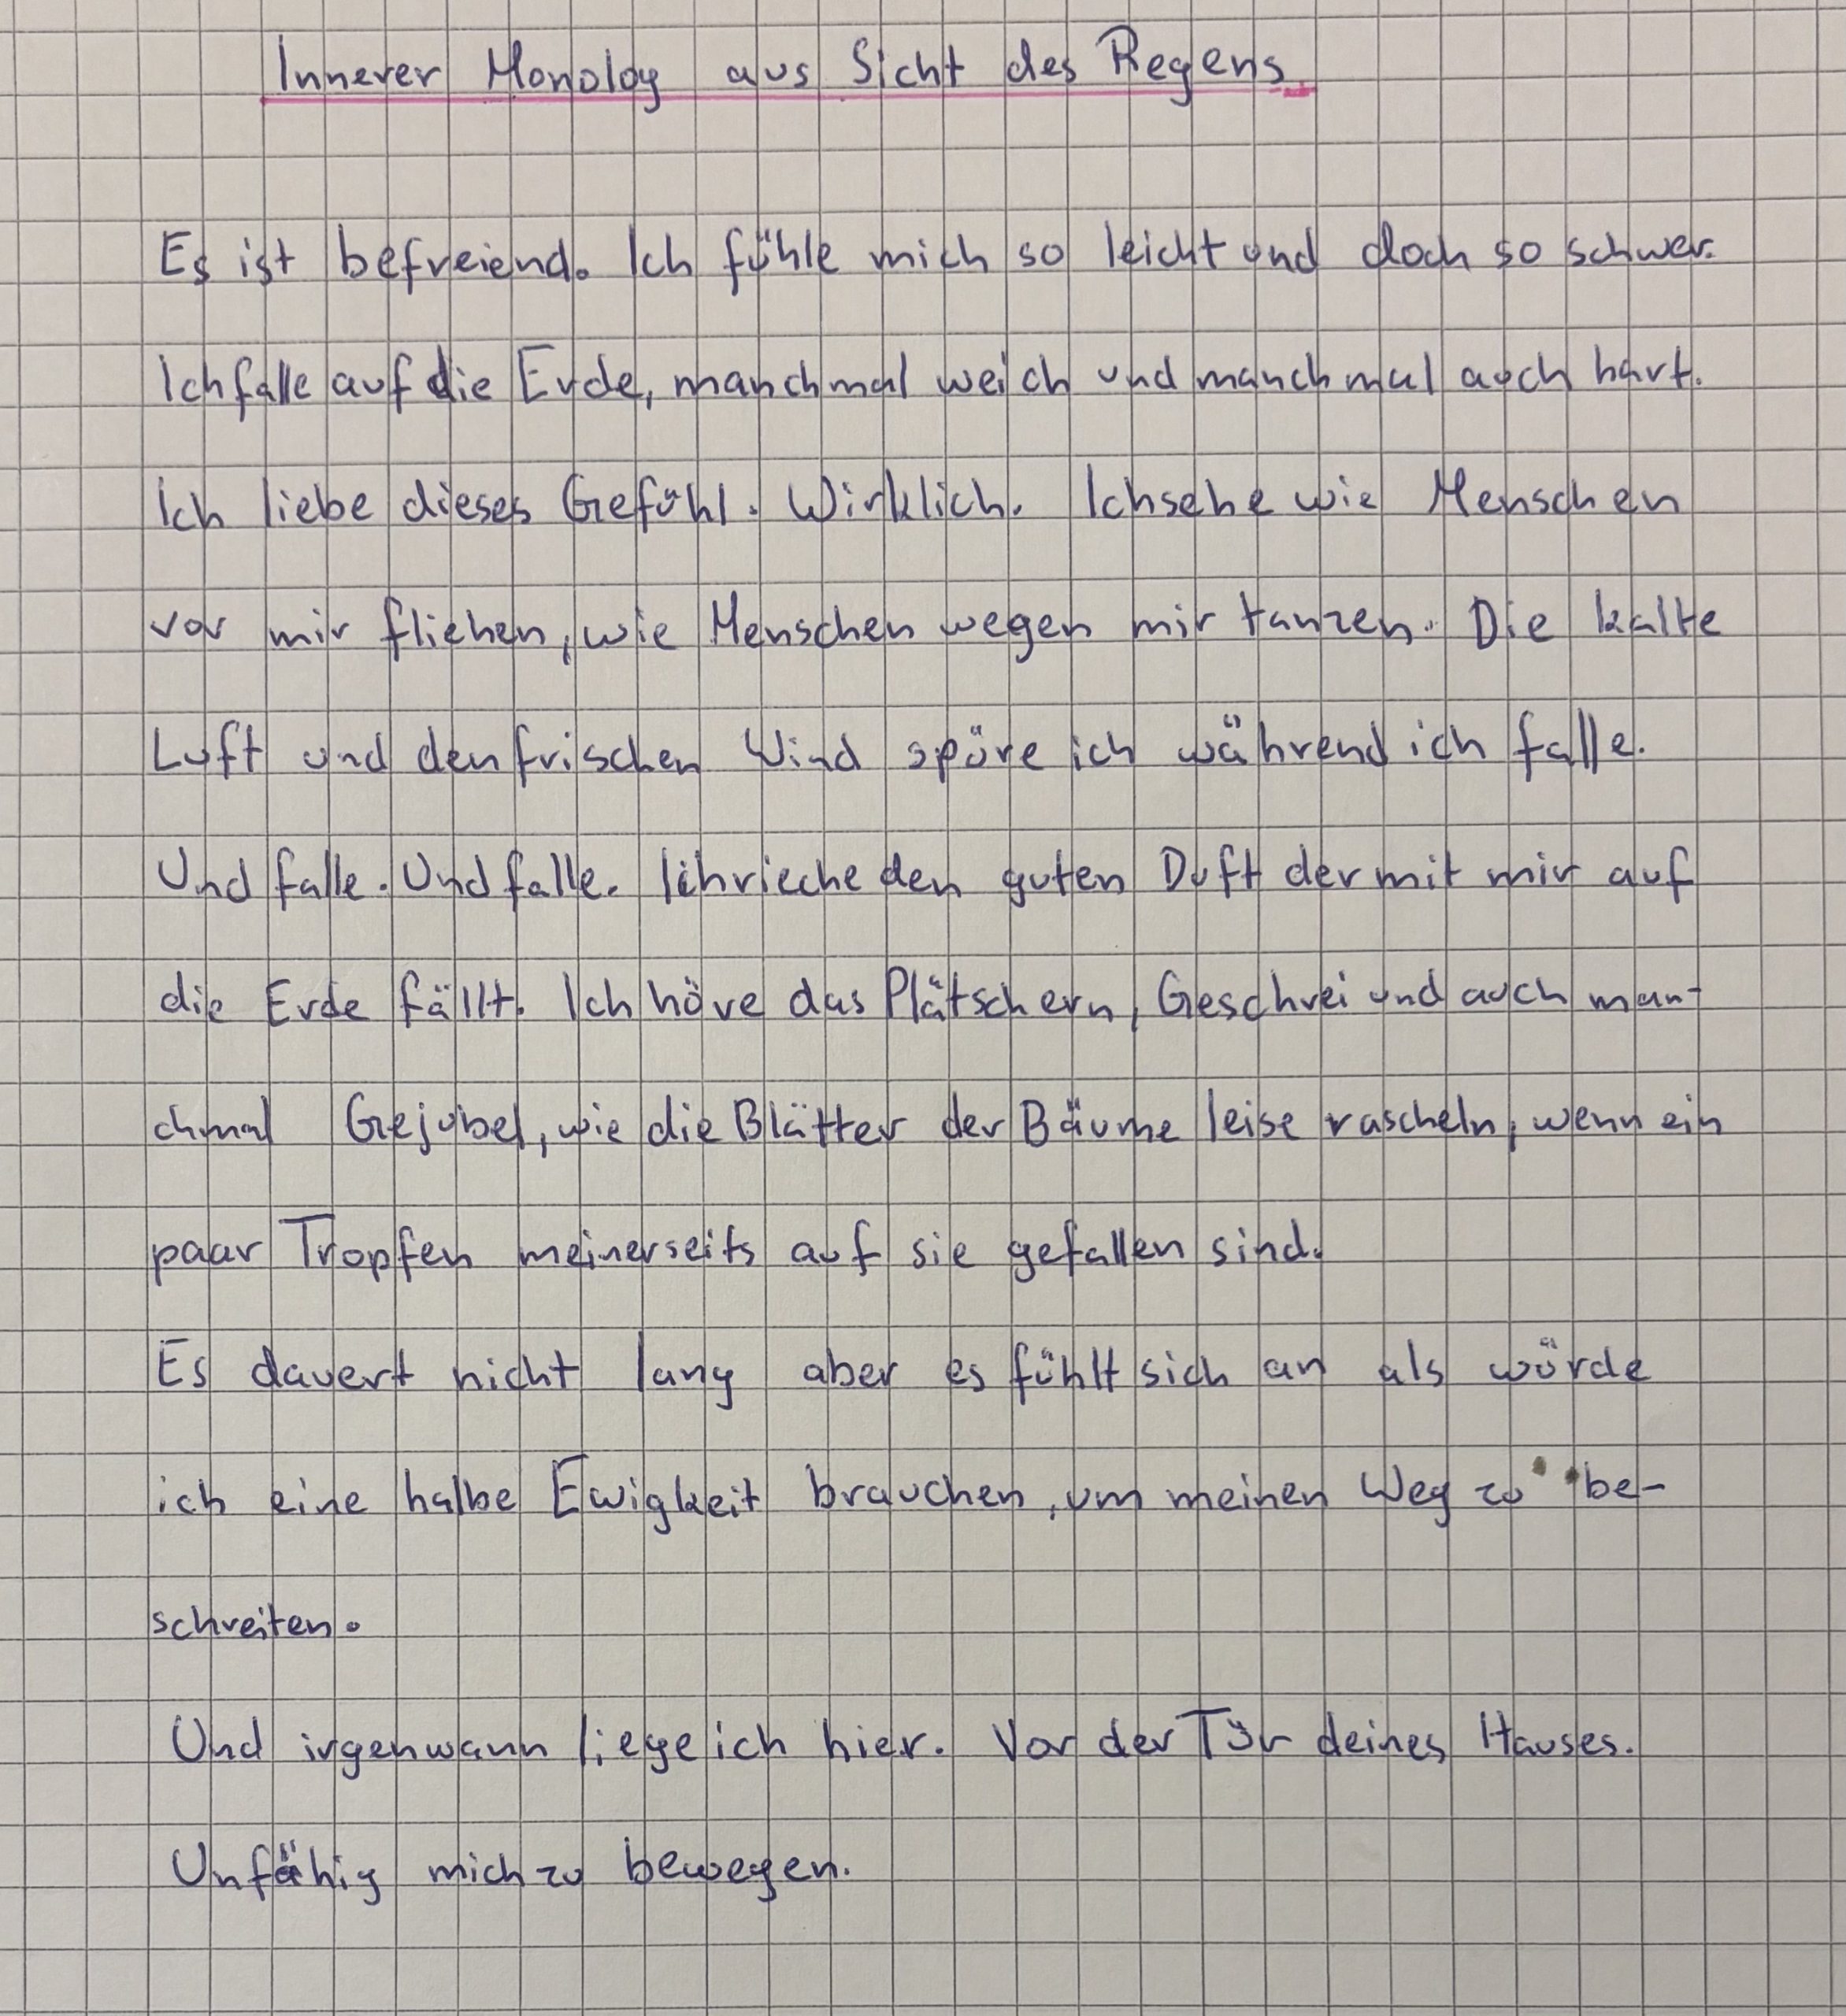 Innerer Monolog aus Sicht des Regens
Es ist befreiend. Ich fühle mich so leicht und doch so schwer.
Ich falle auf die Erde, manchmal weich und manchmal auch hart.
Ich liebe dieses Gefühl. Wirklich. Ich sehe wie Menschen
vor mir fliehen, wie Menschen wegen mir tanzen. Die kalte
Luft und den frischen Wind spüre ich während ich falle.
Und falle. Und falle. Ich rieche den guten Duft der mit mir auf
die Erde fällt. Ich höre das Plätschern, Geschrei und auch man-
chmal Gejubel, wie die Blätter der Bäume leise rascheln, wenn ein
paar Tropfen meinerseits auf sie gefallen sind.
Es dauert nicht lang aber es fühlt sich an als würde
ich eine halbe Ewigkeit brauchen, um meinen Weg zu be-
schreiten.
Und irgenwann liege ich hier. Vor der Tür deines Hauses.
Unfähig mich zu bewegen.